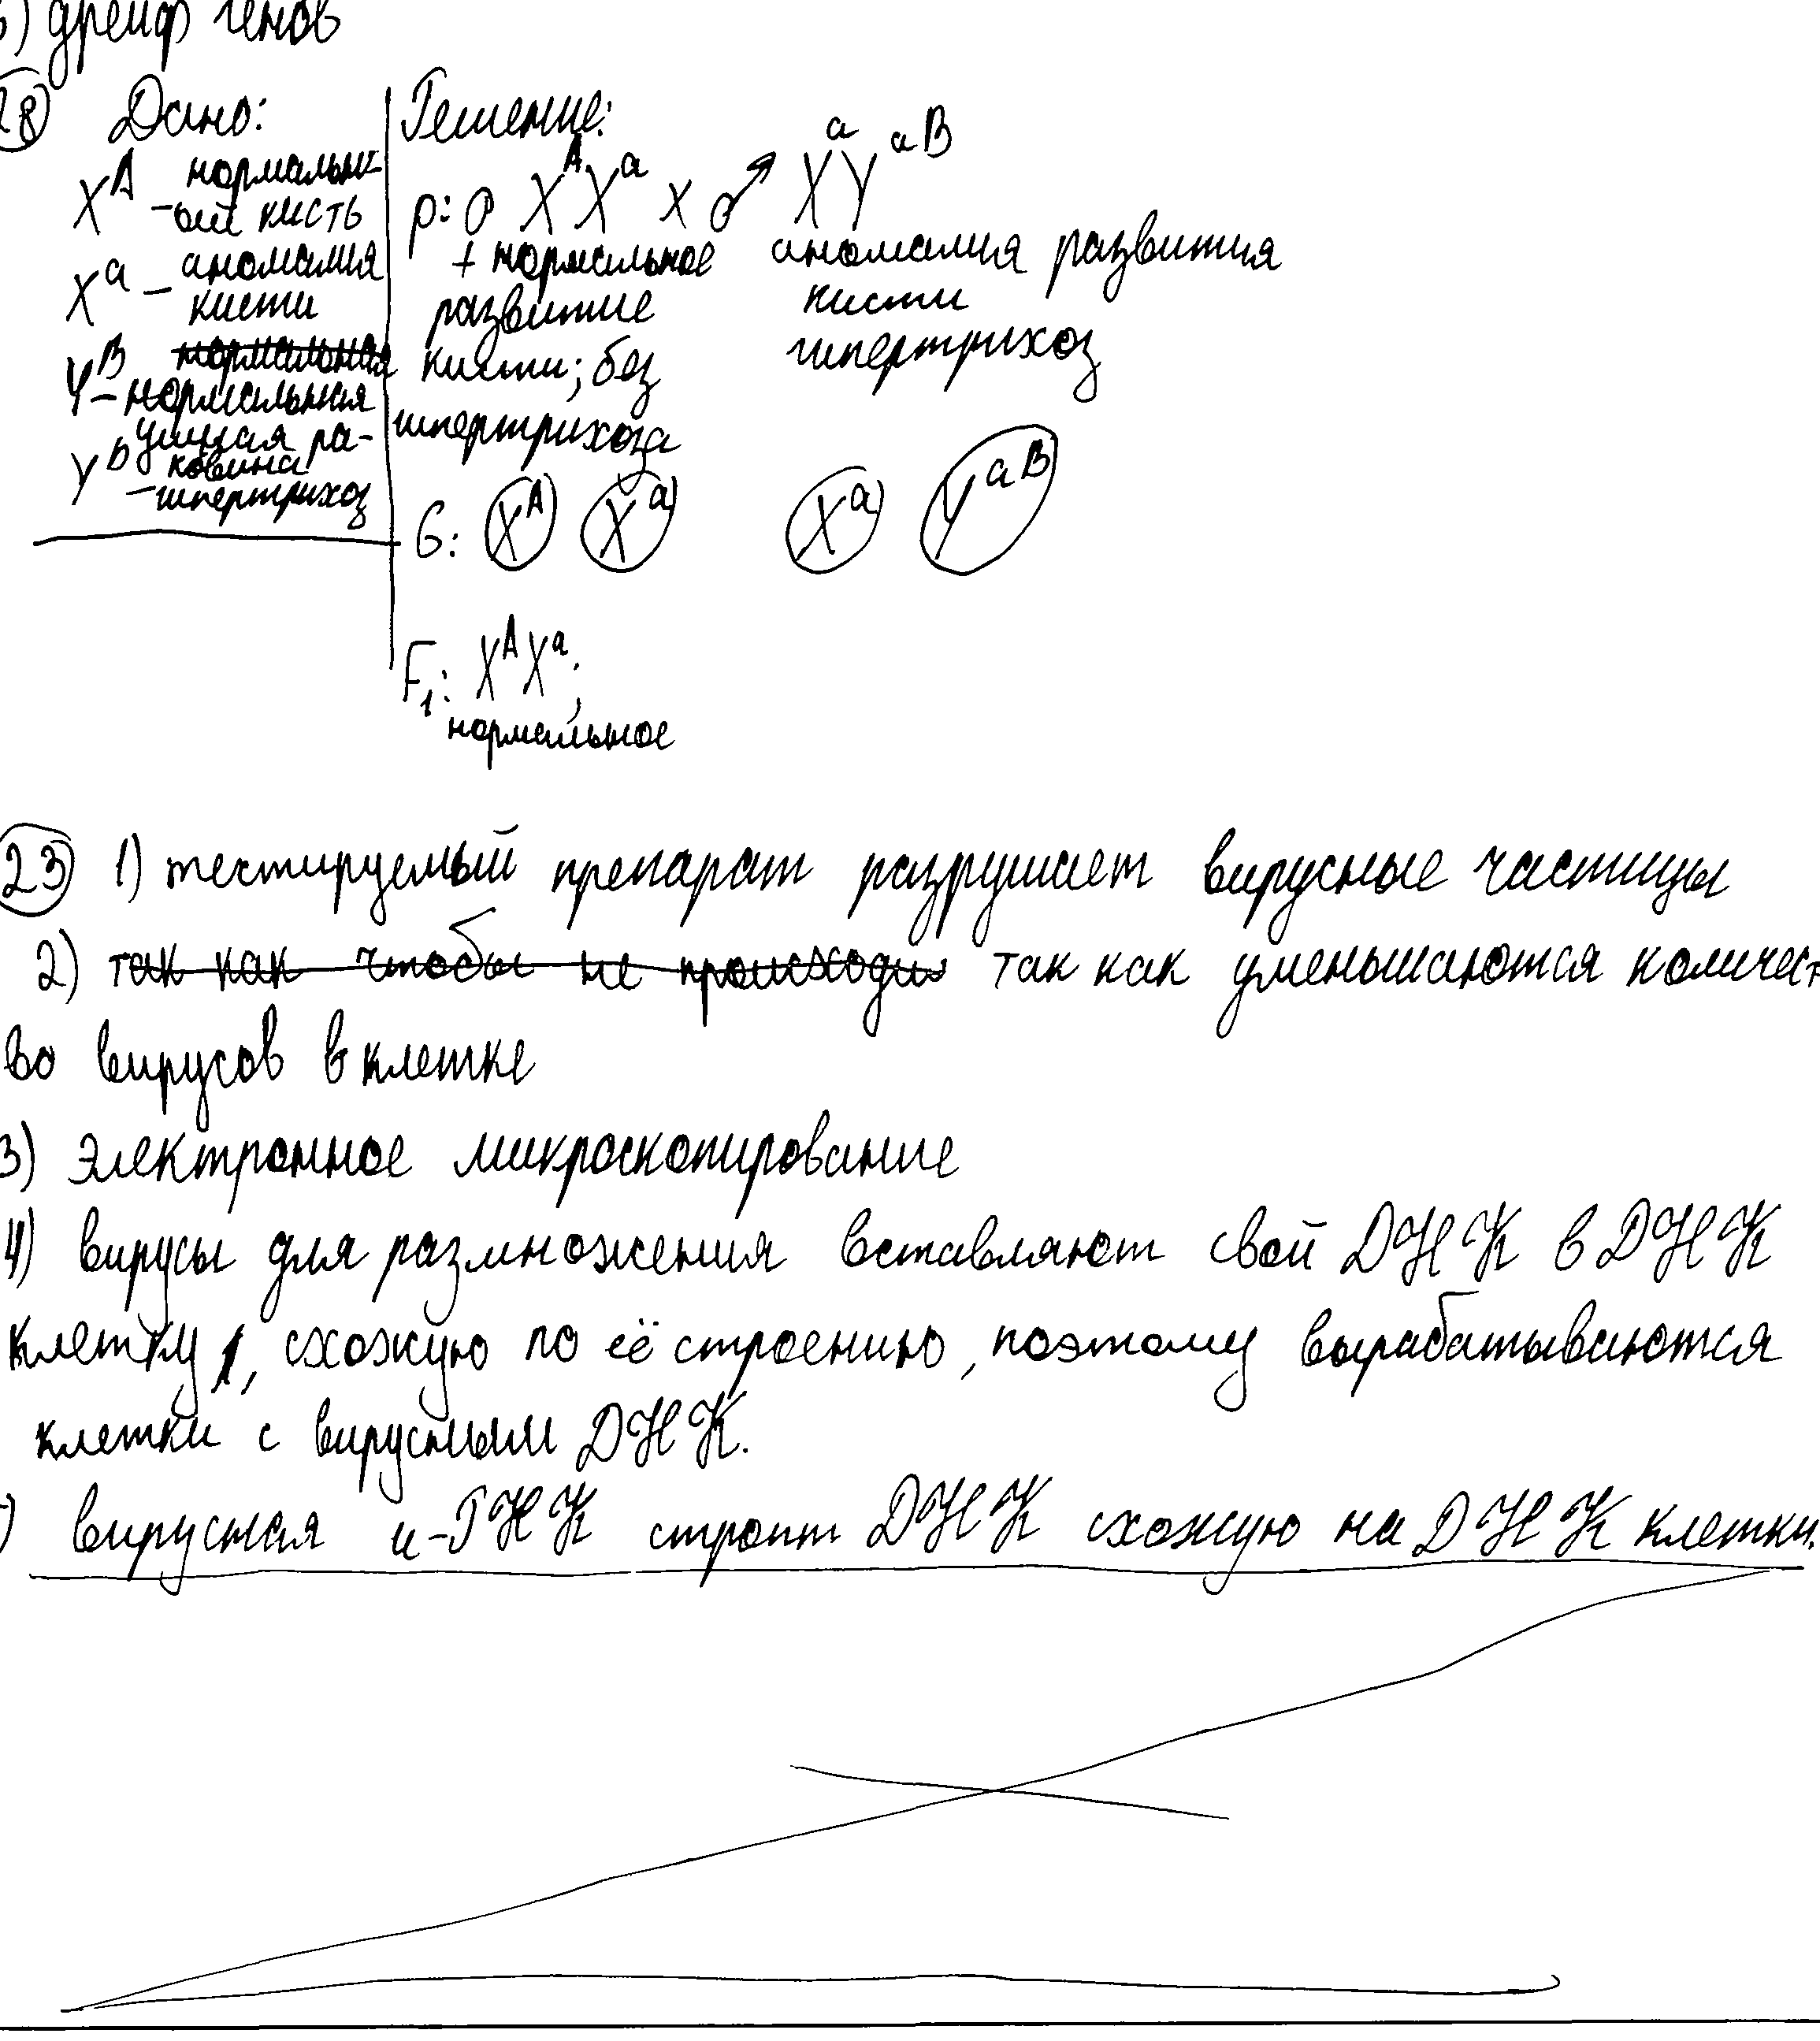 ) дрейф генов
28 Дано: Решение:
X^A – нормальн-
ый кисть
X^a – аномалия
кисти
Y^B нормальная
– нормальная
ушная ра-
ковина
Y^b – гипертрихоз
P: ♀ X^A X^a x ♂ X^a Y^aB
+ нормальное аномалия развития
развитие кисти
кисти; без гипертрихоз
гипертрихоза
G: X^A X^a X^a Y^aB
F1: X^A X^a;
нормальное
23 1) тестируемый препарат разрушает вирусные частицы
2) так как чтобы не происходи так как уменьшаются количест
во вирусов в клетке
3) электронное микроскопирование
4) вирусы для размножения вставляют свой ДНК в ДНК
клетку, схожую по её строению, поэтому вырабатываются
клетки с вирусным ДНК.
) вирусная и-РНК строит ДНК схожую на ДНК клетки.